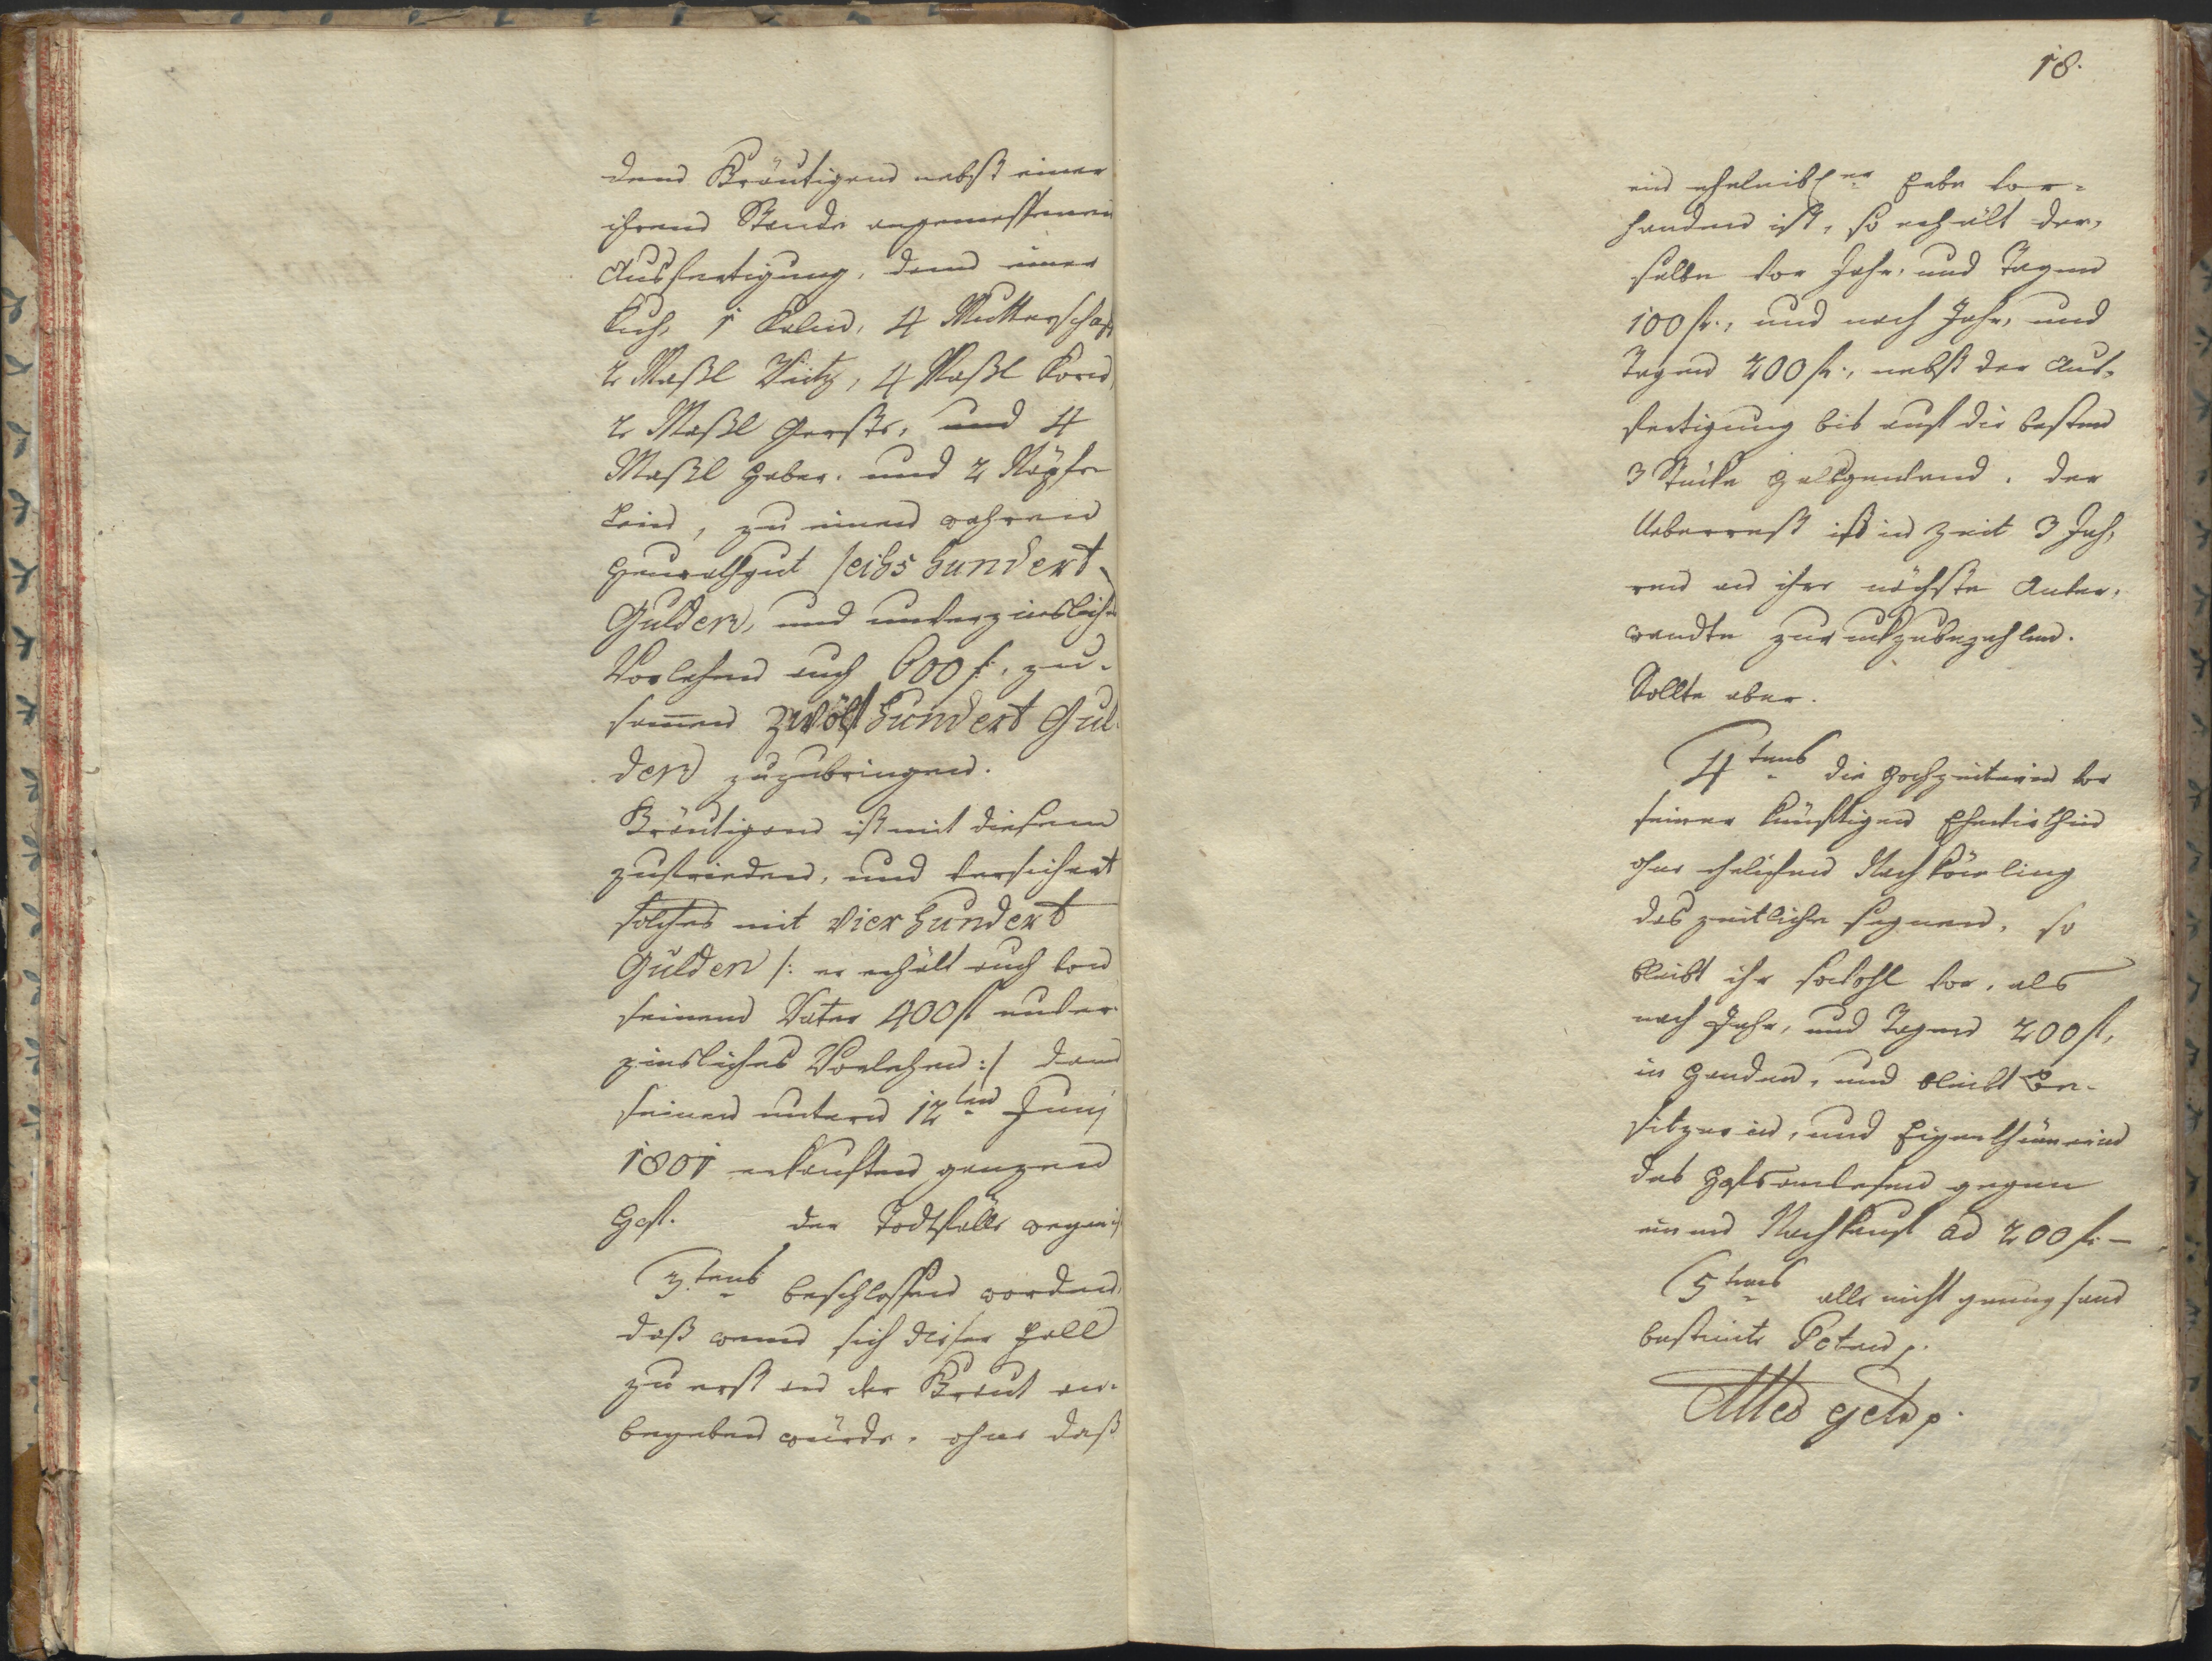 dem Bräutigam nebst einer
ihrem Stande angemessenen
Ausfertigung, dann einer
Kuh, 1 Kalm, 4 Mutterschaf
2 Maßl Weitz, 4 Maßl Korn,
2 Maßl Gerste, und 4
Maßl Haber, und 2 Näpfe
Lein, zu einem wahren
Heurathgut sechs hundert
Gulden, und unverzinsliches
Vorlehen auch 600 f:, zu-
samen zwölf hundert Gul-
den zuzubringen.
Bräutigam ist mit diesem
zufrieden, und versichert
solches mit vier hundert
Gulden /: er erhält auch von
seinem Vater 400 fl unver-
zinsliches Vorlehen :/ dann
seinen unterm 12ten Junj
1801 erkauften ganzen
Hof. der Todtfälle wegen ist
3tens beschlossen worden,
daß wenn sich dieser Fall
zu erst an der Braut er-
begeben würde, ohne daß
18.
ein eheleibl:er Erbe vor-
handen ist, so erhält der-
selbe vor Jahr, und Tagen
100 fl:, und nach Jahr, und
Tagen 200 fl:, nebst der Aus-
fertigung bis auf die besten
3 Stücke Halsgewand. der
Ueberrest ist in Zeit 3 Jah-
ren an ihre nächste Anver-
wandte zuruckzubezahlen.
Sollte aber.
4tens die Hochzeiterin vor
seiner künftigen Ehewirthin
ohne ehelichen Nachkömling
das zeitliche segnen, so
bleibt ihr sowohl vor, als
nach Jahr, und Tagen 200 fl,
in Handen, und bleibt Be-
sitzerin, und Eigenthümerin
des Hofsanwesen gegen
einen Nachkauf ad 200 f: —
5tens alle nicht genugsam
bestimte Poten p.
Alles getr p.